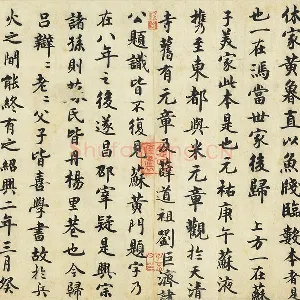 休家黃魯直以魚牋臨數本者是
也一在馮當世家後歸上方一在蘇
子美家此本是也元祐庚午蘇液
攜至東都與米元章觀於天清
寺舊有元章及薛道祖劉巨濟諸
公題識皆不復見蘇黃門題字乃
在八年之後遂昌邵宰疑是興宗
諸孫則皆丹楊里巷也今歸
呂辯〻老〻父子皆喜學書故於兵
火之間能終有之紹興二年三月癸